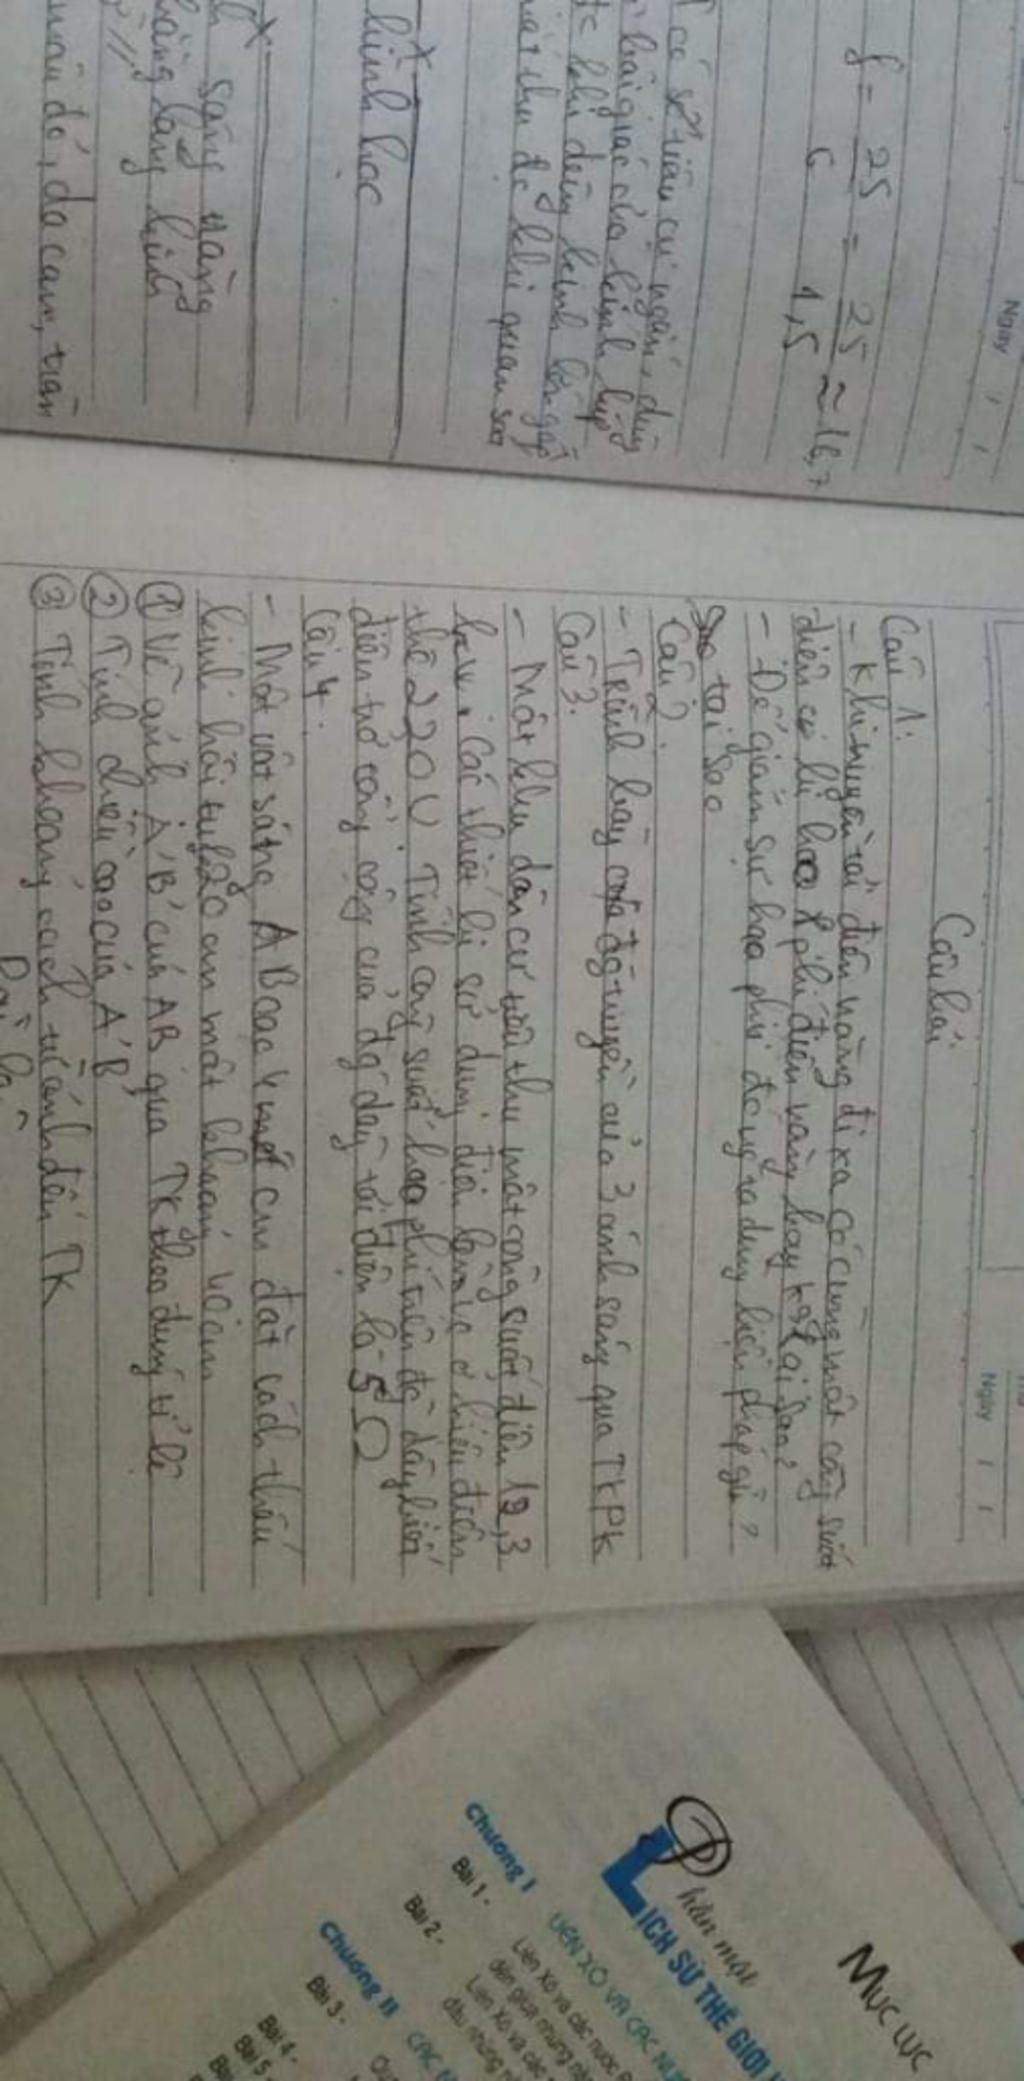 Ngày / /
f = 25/G = 25/1,5 ≈ 16,7
có số tiêu cự ngắn, dùng
bội giác của kính lúp
khi dùng kính lớn gấp
thu đc khi quan sát
hình học
sáng trắng
bằng lăng kính
màu đỏ, da cam,
Ngày / /
Câu hỏi
Câu 1:
- Khi truyền tải điện năng đi xa có cùng một công suất
điện có bị hao phí điện năng hay k? tại sao?
- Để giảm sự hao phí đó người ta dùng biện pháp gì?
tại sao
Câu 2.
- Trình bày đg truyền của 3 ánh sáng qua TKPK
Câu 3.
- Một khu dân cư tiêu thụ một công suất điện 12,3
kw. Các thiết bị sử dụng điện ở hiệu điện
thế 220V Tính công suất hao phí trên đg dây biết
điện trở tổng cộng của đg dây tải điện là 5Ω
Câu 4.
- Một vật sáng AB cao 4 cm đặt cách thấu
kính hội tụ f 20 cm một khoảng 40cm
① Vẽ ảnh A'B' của AB qua TK theo đúng tỉ lệ
② Tính chiều cao của A'B'
③ Tính khoảng cách từ ảnh đến TK
MỤC LỤC
Phần một
LỊCH SỬ THẾ GIỚI
Chương I
LIÊN XÔ VÀ CÁC
Bài 1 -
Liên Xô và các nước
đến giữa những
Bài 2 -
Liên Xô và các
đầu những
Chương II
CÁC
Bài 3 -
Bài 4 -
Bài 5 -